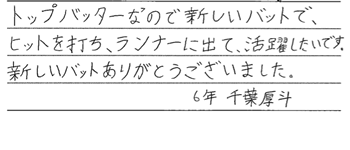 トップバッターなので新しいバットで、
ヒットを打ち、ランナーに出て、活躍したいです。
新しいバットありがとうございました。
6年 千葉厚斗